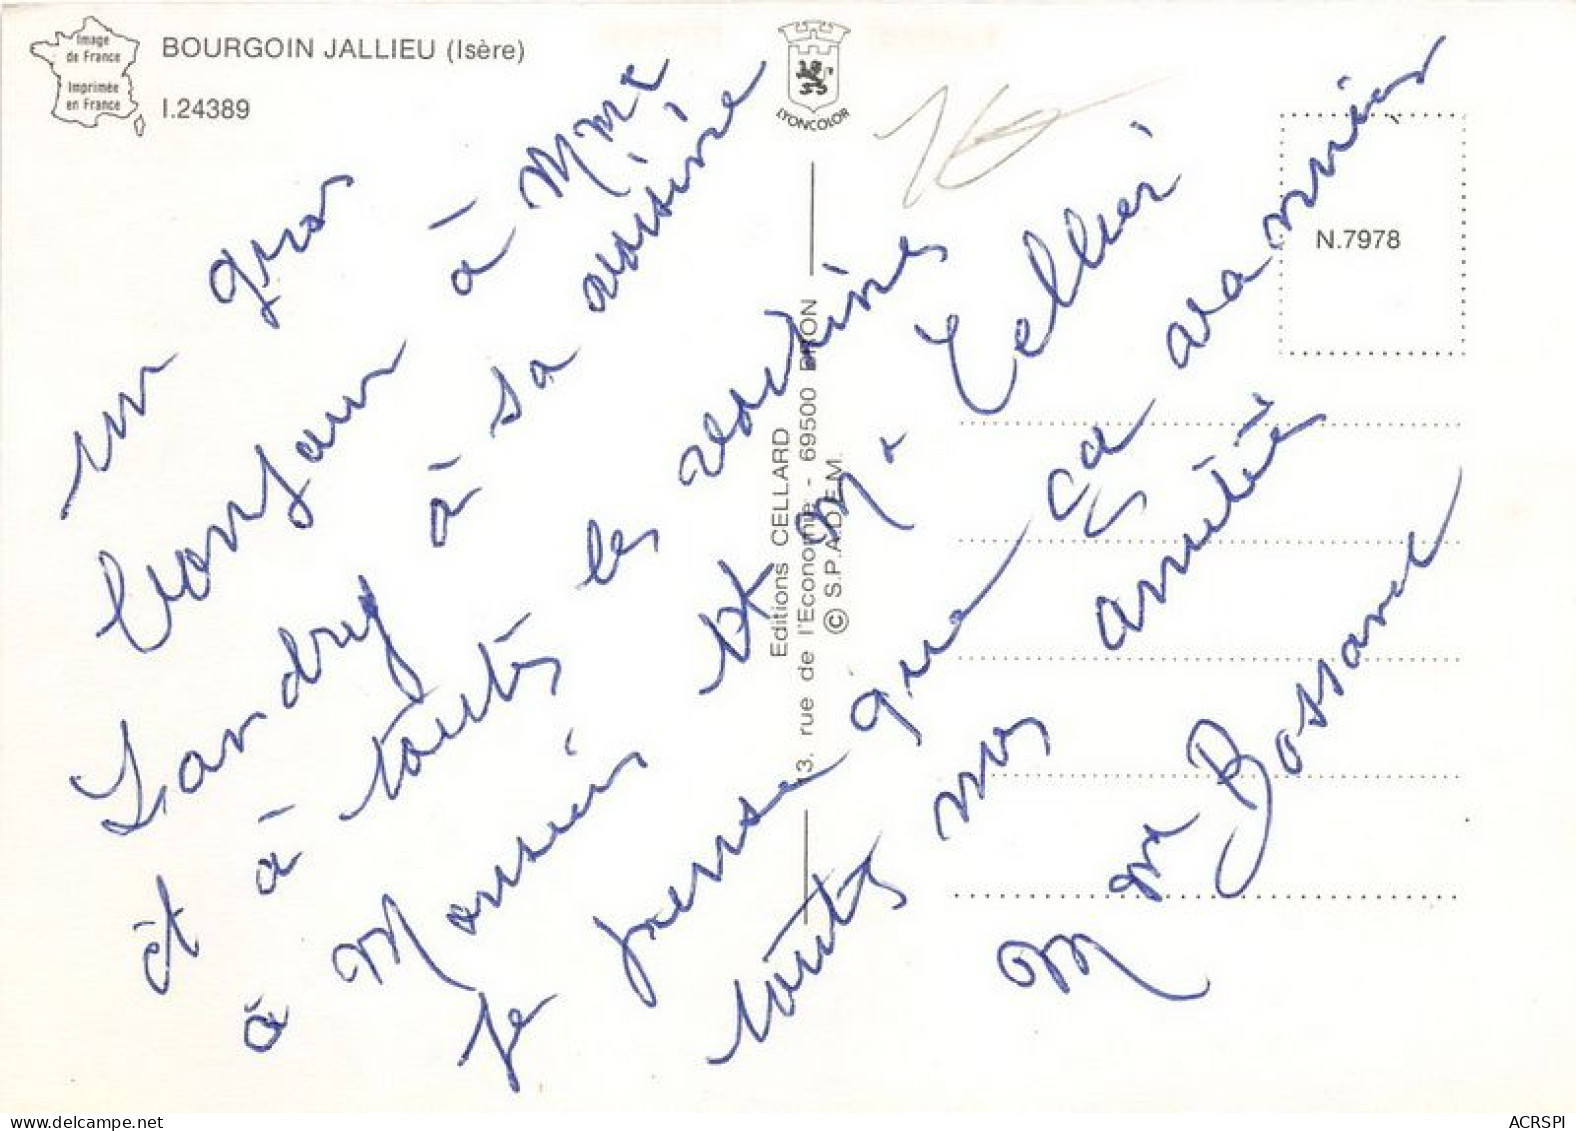 Image
de France
Imprimée
en France
BOURGOIN JALLIEU (Isère)
I.24389
LYONCOLOR
N.7978
Editions CELLARD
3, rue de l'Economie - 69500 BRON
© S.P.A.D.E.M.
un gros
bonjour à Mme
Landry à sa voisine
et à toutes les voisines
à Monsieur et Mr Cellier
je pense que ça va mieux
toutes mes amitiés
M Mr Bossard
ACRSPI